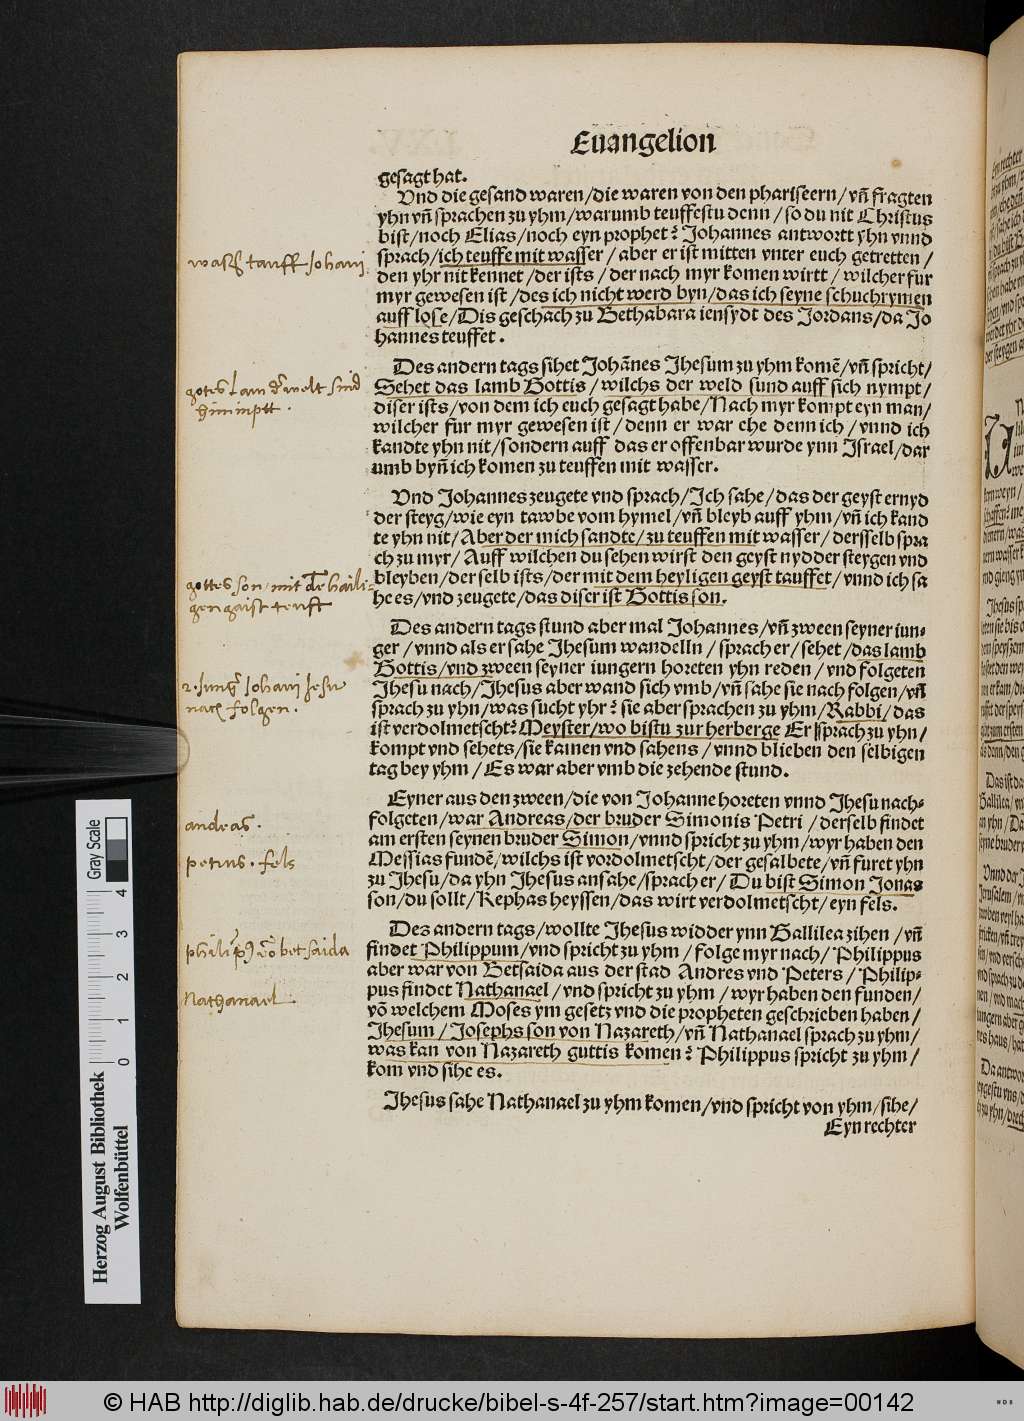 Euangelion
gesagt hat.
Vnd die gesand waren/die waren von den phariseern/vñ fragten
yhn vñ sprachen zu yhm/warumb teuffestu denn/so du nit Christus
bist/noch Elias/noch eyn prophet? Johannes antwortt yhn vnnd
sprach/ich teuffe mit wasser/aber er ist mitten vnter euch getretten/
den yhr nit kennet/der ists/der nach myr komen wirtt/wilcher fur
myr gewesen ist/des ich nicht werd byn/das ich seyne schuchrymen
auff lose/Dis geschach zu Bethabara iensydt des Jordans/da Jo
hannes teuffet.
Des andern tags sihet Johãnes Jhesum zu yhm komẽ/vñ spricht/
Sehet das lamb Gottis/wilchs der weld sund auff sich nympt/
diser ists/von dem ich euch gesagt habe/Nach myr kompt eyn man/
wilcher fur myr gewesen ist/denn er war ehe denn ich/vnnd ich
kandte yhn nit/sondern auff das er offenbar wurde ynn Israel/dar
umb byñ ich komen zu teuffen mit wasser.
Vnd Johannes zeugete vnd sprach/Ich sahe/das der geyst ernyd
der steyg/wie eyn tawbe vom hymel/vñ bleyb auff yhm/vñ ich kand
te yhn nit/Aber der mich sandte/zu teuffen mit wasser/dersselb spra
ch zu myr/Auff wilchen du sehen wirst den geyst nydder steygen vnd
bleyben/der selb ists/der mit dem heyligen geyst tauffet/vnnd ich sa
he es/vnd zeugete/das diser ist Gottis son.
Des andern tags stund aber mal Johannes/vñ zween seyner iun-
ger/vnnd als er sahe Jhesum wandelln/sprach er/sehet/das lamb
Gottis/vnd zween seyner iungern horeten yhn reden/vnd folgeten
Jhesu nach/Jhesus aber wand sich vmb/vñ sahe sie nach folgen/vñ
sprach zu yhn/was sucht yhr? sie aber sprachen zu yhm/Rabbi/das
ist verdolmetscht? Meyster/wo bistu zur herberge Er sprach zu yhn/
kompt vnd sehets/sie kamen vnd sahens/vnnd blieben den selbigen
tag bey yhm/Es war aber vmb die zehende stund.
Eyner aus den zween/die von Johanne horeten vnnd Jhesu nach-
folgeten/war Andreas/der bruder Simonis Petri/derselb findet
am ersten seynen bruder Simon/vnnd spricht zu yhm/wyr haben den
Messias fundẽ/wilchs ist vordolmetscht/der gesalbete/vñ furet yhn
zu Jhesu/da yhn Jhesus ansahe/sprach er/Du bist Simon Jonas
son/du sollt/Kephas heyssen/das wirt verdolmetscht/eyn fels.
Des andern tags/wollte Jhesus widder ynn Gallilea zihen/vñ
findet Philippum/vnd spricht zu yhm/folge myr nach/Philippus
aber war von Betsaida aus der stad Andres vnd Peters/Philip-
pus findet Nathanael/vnd spricht zu yhm/wyr haben den funden/
võ welchem Moses ym gesetz vnd die propheten geschrieben haben/
Jhesum/Josephs son von Nazareth/vñ Nathanael sprach zu yhm/
was kan von Nazareth guttis komen? Philippus spricht zu yhm/
kom vnd sihe es.
Jhesus sahe Nathanael zu yhm komen/vnd spricht von yhm/sihe/
Eyn rechter
tauff Johani
gotes lam welt sind
gottes son mit haili-
gen gaist teuft
2. Jung Johani Jesu
nach folgen.
andreas.
petrus. fels
betsaida
Nathanael
Gray Scale
4
3
2
1
0
Herzog August Bibliothek
Wolfenbüttel
© HAB http://diglib.hab.de/drucke/bibel-s-4f-257/start.htm?image=00142